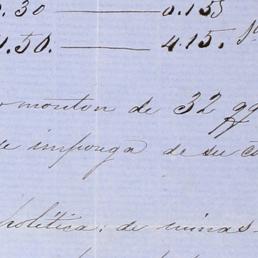 0.30 — 0.155
1.50. — 4.15.
monton de 32 qq
e imponga de su
politica: de minas